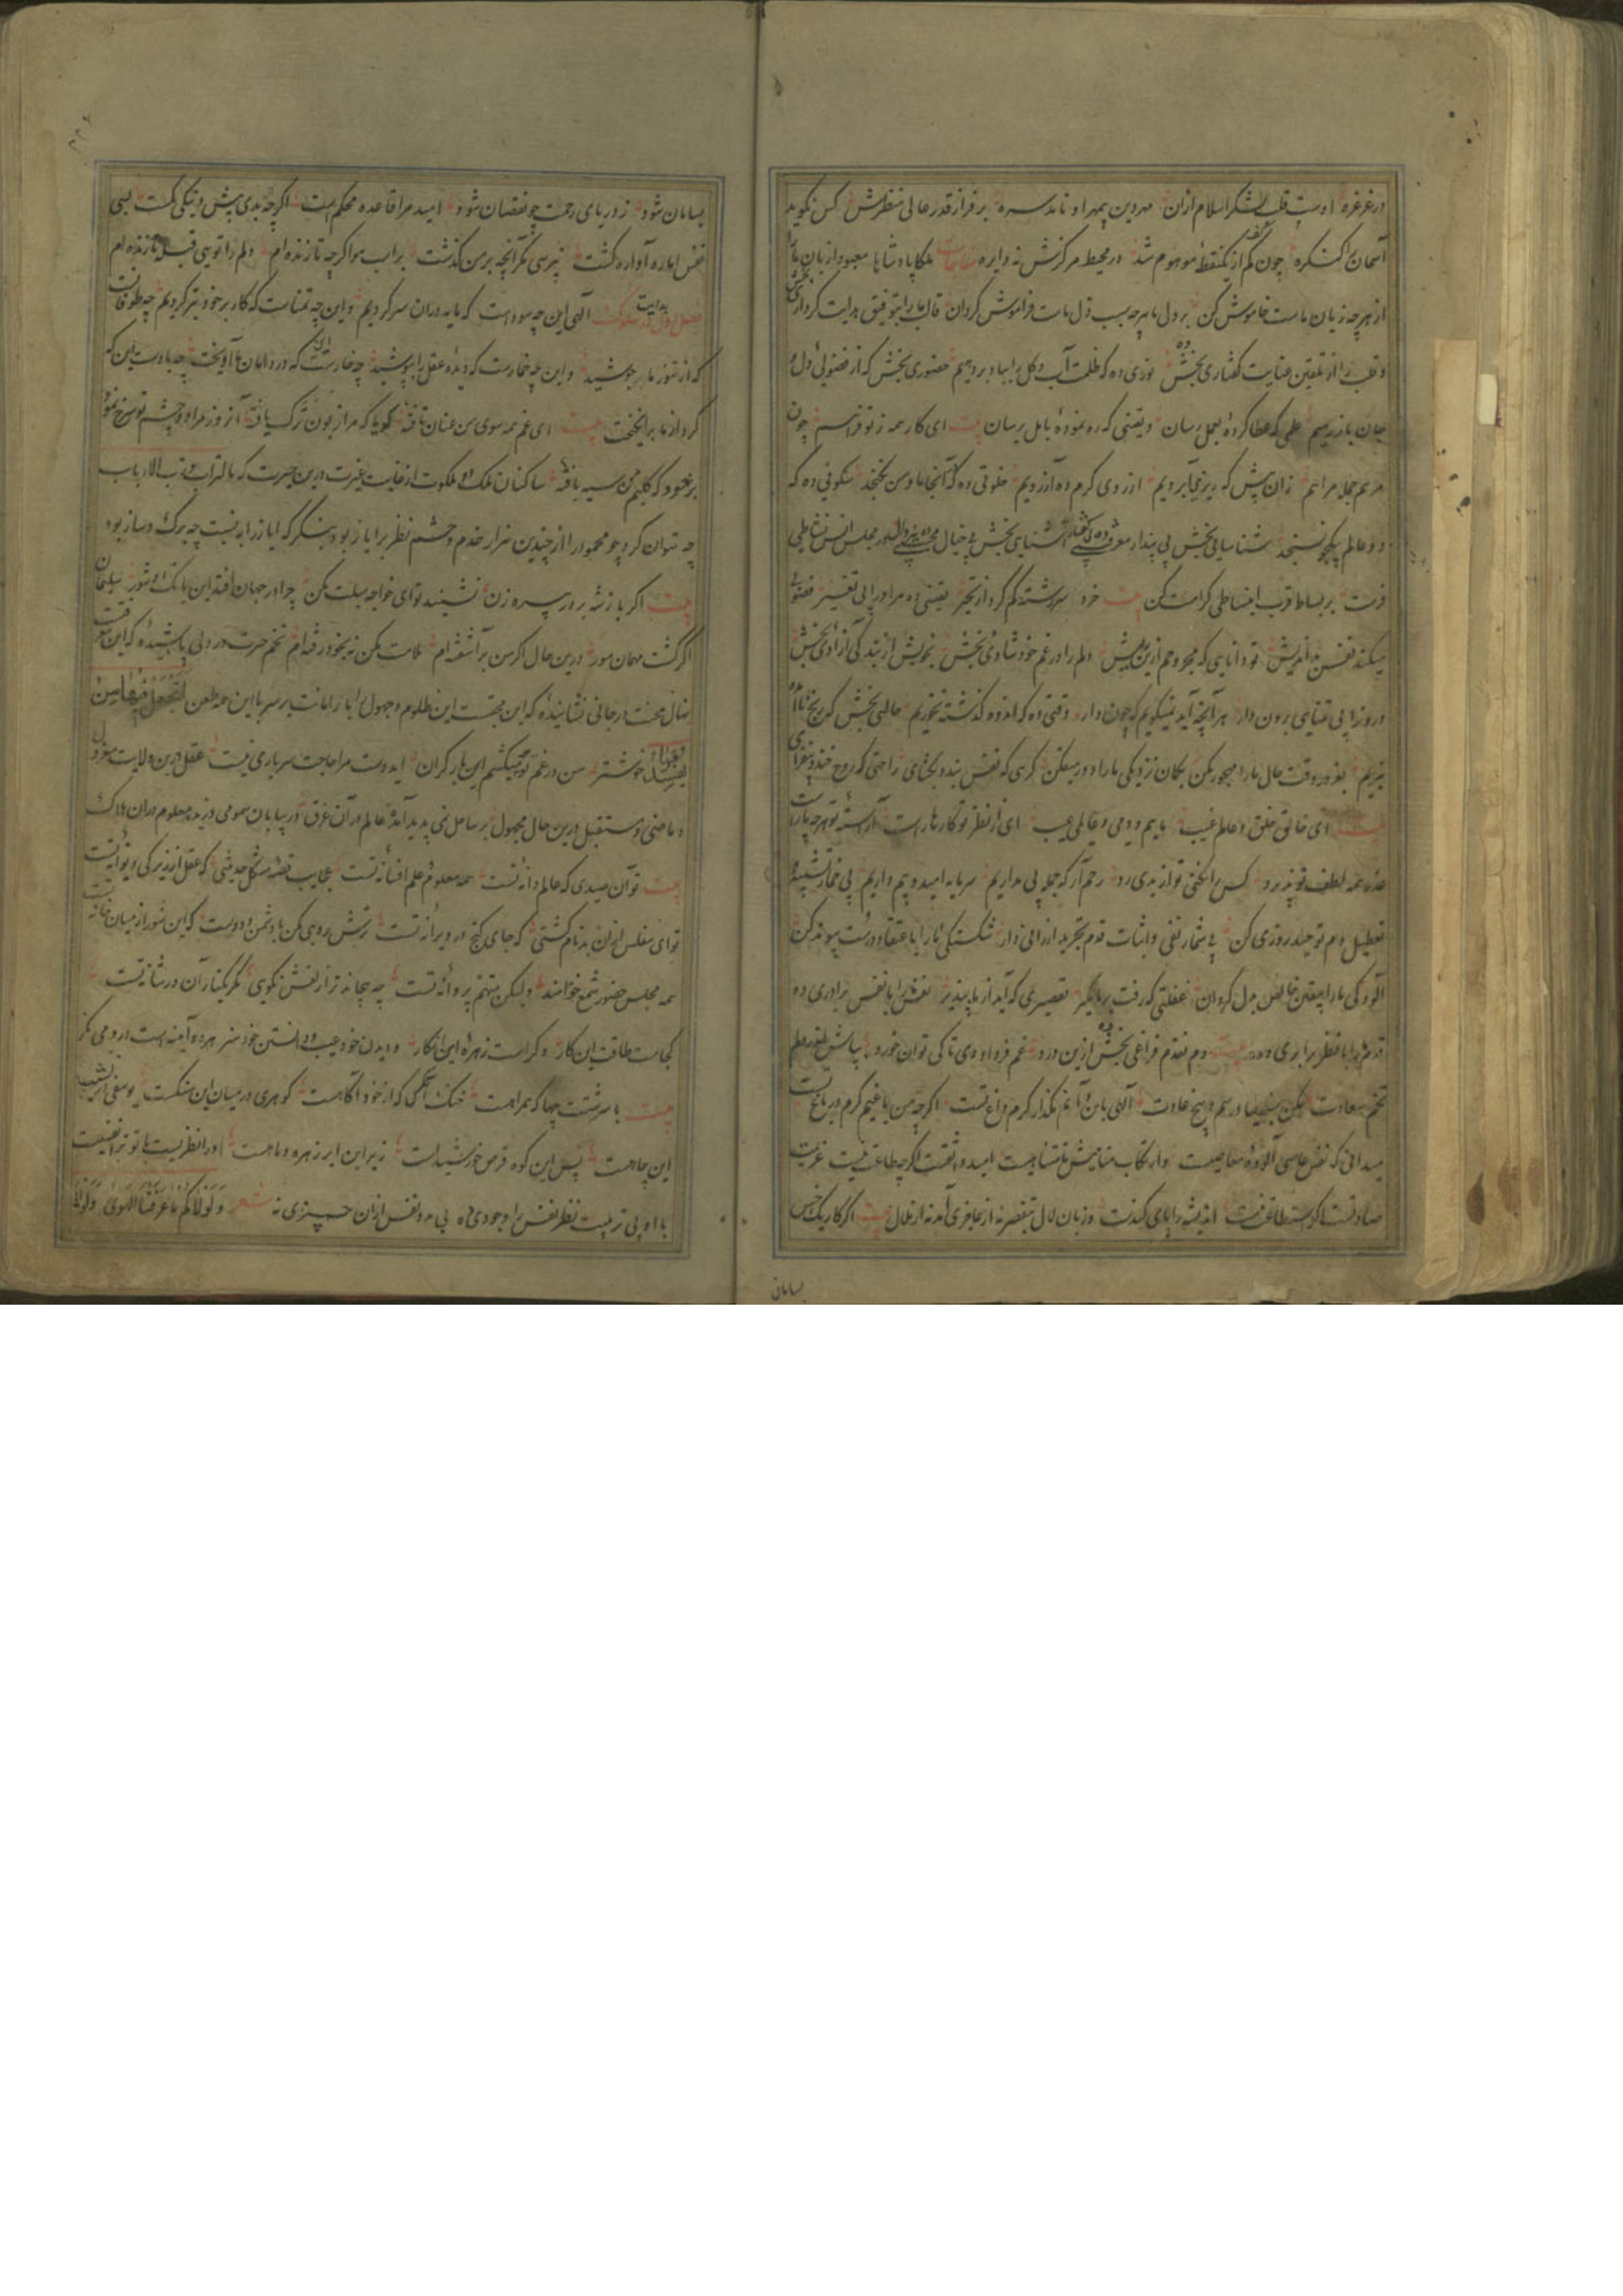 در غرغره اوست قلب لشکر اسلام ازان مهر دین بمهر او نامد سره برفراز قدر عالی منظرش کس نگوید
آسمان را کنگره چون کم از یکنقطه موهوم شد در محیط مرکزش نه دایره مناجات ملکا پادشاها معبودا زبان ما را
از هرچه زیان ماست خاموش کن بر دل ما هرچه سبب ذل ماست فراموش گردان قالب ما را بتوفیق هدایت کرداری بخش
و قلب را از تلقین عنایت گفتاری بخش نوری ده که ظلمت آب و گل را بباد بردهیم حضوری بخش که از فضولی دل و
جان باز رهیم علمی که عطا کردهٔ بعمل رسان و یقینی که ره نمودهٔ باهل رسان بیت ای کار همه ز تو فراهم چون
مرهم جمله مراهم زان پیش که بریزی آبرویم از روی کرم ده آرزویم خلوتی ده که آنجا ما و من نگنجد سکونی ده که
دو عالم بهیچ نسنجد شناسائی بخش بی پندار معرفت آشنایی بخش بی خیال در مجلس انس نشاطی
فرست بر بساط قرب انبساطی کرامت کن بیت خرد سررشته گم کرد از تحیر یقینی ده مرا ورای تغییر فضولی
میکند نفس بداندیش تو دانایی که مجروحم ازین بیش دلم را در غم خود شادئ بخش بخویش از بندگی آزادی بخش
درونرا بی تمنای برون دار هر آنچه آید نمیگویم که چون دار وقتی ده که اندوه گذشته نخوریم حالتی بخش که رنج ناآمده
نبریم بغرور وقت حال ما را مهجور مکن بگمان نزدیکی ما را دور میفکن گریی که نفس بندد بخشای راحتی که روح خندد بفزای
بیت ای خالق خلق و عالم غیب مائیم و دمی و عالمی عیب ای از نظر تو کارها راست آراسته تو هرچه ما راست
عذر همه لطف تو پذیرد کس را نکنی تو از بدی رد رحم آر که جمله بی مداریم سرمایه امید و بیم داریم بی خمار تشبیه و
تعطیل دم توحید روزی کن بی شمار نفی و اثبات قدم تجرید ارزانی دار شکستگی ما را باعتقاد درست پیوند کن
آلودگی ما را بیقین خالص بدل گردان غفلتی که رفت بر ما مگیر تقصیری که آید از ما بپذیر نفس را با نفس برادری ده
قدم را با نظر برابری ده بیت دم نقدم فراغی بخش ازین درد غم فردا و دی تا کی توان خورد بپاش اندر دلم
تخم سعادت مکن بنیاد رسم و بیخ عادت الهی بان و آنم مگذار کرم داغ تست اگرچه من باغیم کرم در باغ تست
میدانی که نفس عاصی آلوده معاصیست و ارتکاب مناهیش نامتناهیست امید واثقست اگرچه طاعت نیست عزیمت
صادقست اگر استطاعت نیست اندیشه را پای کندست و زبان لال نتقصیر نه از عاجزی آمد نه از ظلال بیت اگر کار یک خس
بسامان
بسامان شود ز دریای رحمت چه نقصان شود امید مرا قاعده محکم است اگرچه بدی بیش و نیکی کمست بسی
نفس اماره آواره گشت نپرسی مگر آنچه بر من گذشت براب هوا گرچه تا زنده ام دلم را تویی قبله تا زنده ام
فصل اول در بدایت سلوک الهی این چه سوداست که مایه در آن سر کردیم و این چه تمناست که کار بر خود بتر کردیم چه طوفانست
که از تنور ما بر جوشید و این چه خمارست که دیدهٔ عقل را بپوشید چه خارست این که در دامان ما آویخت چه بادست این که
گرد از ما برانگیخت بیت ای غم همه سوی من عنان تافته گویا که مرا زبون ترک یافته آن روز مرا دو چشم تو سرخ نمود
بر عود که گلیم من سیه بافته ساکنان ملک و ملکوت از غایت غیرت درین حیرت که ما للتراب و رب الارباب
چه توان کرد چو محمود را از چندین هزار خدم و حشم نظر بر ایاز بود بنگر که ایاز را به نسبت چه برگ و ساز بود
بیت اگر بازشه بر در پیره زن نشیند تو ای خواجه سبلت مکن چرا در جهان افتد این بانگ و شور سلیمان
اگر گشت مهمان مور درین حال اگر من برآشفته ام ملامت مکن نه بخود رفته ام تخم حسرت در دلی پاشیدهٔ که این حرقت
نهال محنت در جانی نشانیدهٔ که این محنت این ظلوم و جهول را بار امانت بر سر با این همه طعن اتجعل فیها من
یفسد فیها خوشتر من در غم تو میکشم این بار گران ایدوست مرا حاجت سرباری نیست عقل درین ولایت معزول
و ماضی و مستقبل درین حال مجهول بر ساحل نمی پدید آمد عالم در آن غرق در بیابان سمومی وزید معلوم در آن هلاک
بیت تو آن صیدی که عالم دانه تست همه معلوم علم افسانه تست عجایب قصهٔ مشکل حدیثی که عقل از زیرکی دیوانه تست
تو ای مفلس از آن بدنام گشتی که جای گنج در ویرانه تست ترش رویی مکن با دشمن و دوست که این شور از میان خانه تست
همه مجلس حضور شمع خواهند ولیکن متهم پروانه تست
کجاست طاقت این کار و کراست زهرهٔ این انکار و دیدن خود عیب و دانستن خود هنر هرده آینه است در وی نگر
بیت با سرشتت چها که همراهست خنک آنکس که از خود آگاهست گوهری در میان این سنگست یوسفی در نشیب
این چاهست پس این کوه قرص خورشید است زیر این ابر زهره و ماهست او را نظریست با تو ترا نیست
با او بی تربیت نظر نفس را وجودی نه بی مدد نفس از آن چیزی نه شعر ولولاکم ما عرفنا الهوی ولولا